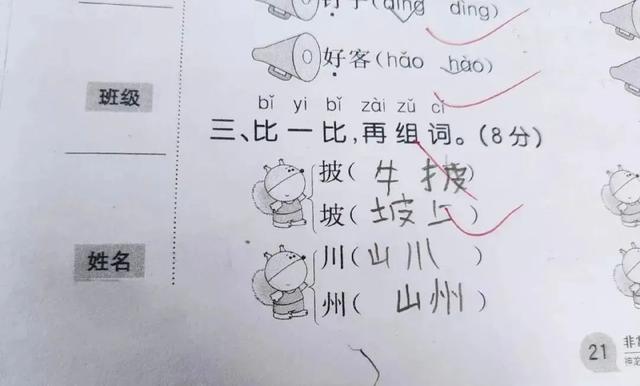 钉子(dīng dìng)
好客(hǎo hào)
班级
bǐ yi bǐ zài zǔ cí
三、比一比,再组词。(8分)
披(牛披)
坡(坡上)
川(山川)
州(山州)
姓名
21